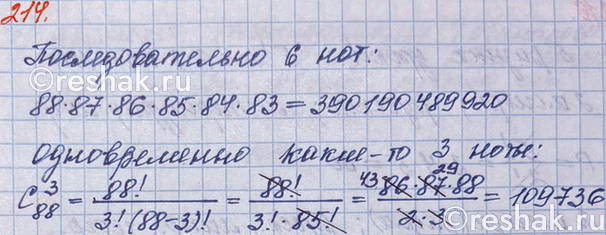 214.
Последовательно 6 нот:
88·87·86·85·84·83=390190489920
одновременно какие-то 3 ноты:
C₈₈³ = 88!/3!(88-3)! = 88!/3!·85! = 43 86·87 29·88/2·3 = 109736
©reshak.ru